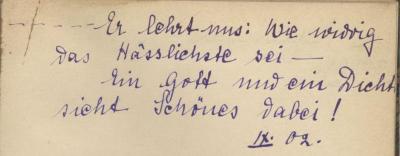 - - - - - Er lehrt uns: Wie widrig
das Hässlichste sei —
Ein Gott und ein Dicht
sieht Schönes dabei!
IX. 02.